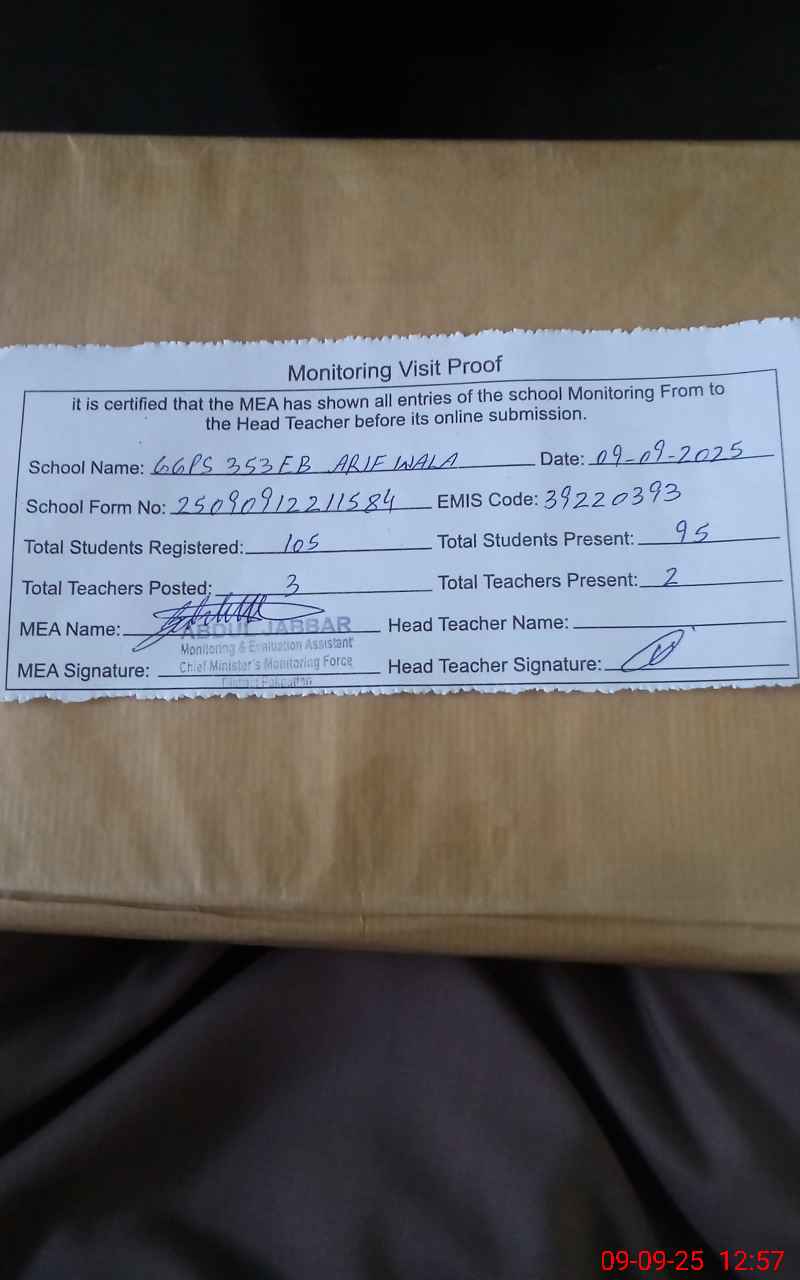 Monitoring Visit Proof
it is certified that the MEA has shown all entries of the school Monitoring From to
the Head Teacher before its online submission.
School Name: GGPS 353 EB ARIF WALA Date: 09-09-2025
School Form No: 25090912211584 EMIS Code: 39220393
Total Students Registered: 105 Total Students Present: 95
Total Teachers Posted: 3 Total Teachers Present: 2
MEA Name: ABDUL JABBAR Head Teacher Name:
Monitoring & Evaluation Assistant
MEA Signature: Chief Minister's Monitoring Force Head Teacher Signature:
District Pakpattan
09-09-25 12:57